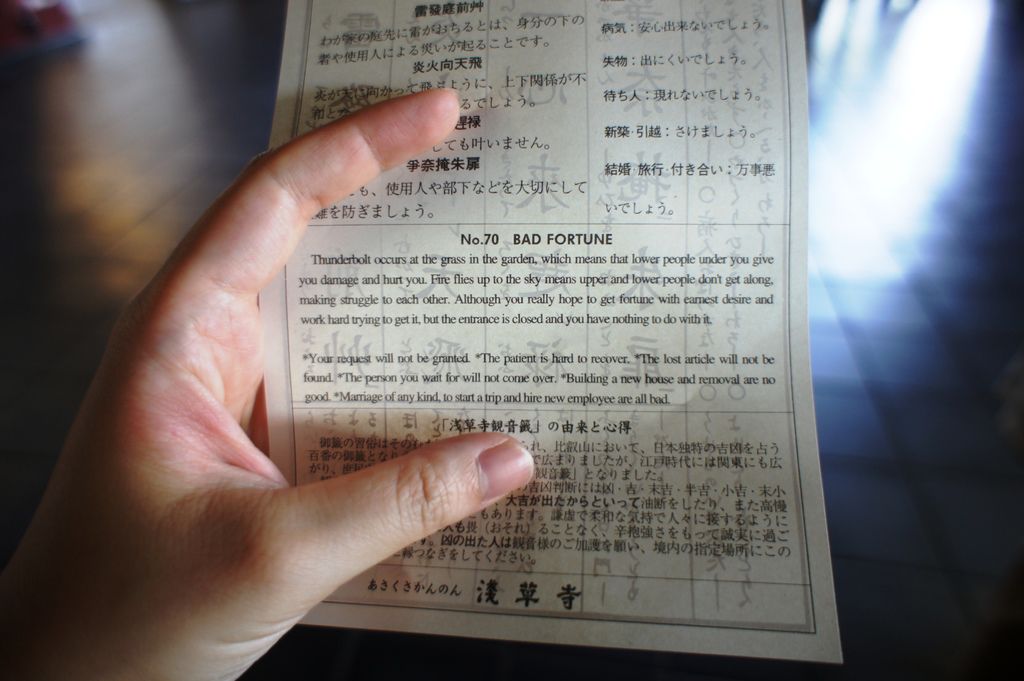 雷發庭前艸
わが家の庭先に雷がおちるとは、身分の下の
者や使用人による災いが起ることです。
炎火向天飛
炎が天に向かって飛ぶように、上下関係が不
和と るでしょう。
禄
しても叶いません。
爭奈掩朱扉
も、使用人や部下などを大切にして
難を防ぎましょう。
病気：安心出来ないでしょう。
失物：出にくいでしょう。
待ち人：現れないでしょう。
新築・引越：さけましょう。
結婚・旅行・付き合い：万事悪
いでしょう。
No.70 BAD FORTUNE
Thunderbolt occurs at the grass in the garden, which means that lower people under you give
you damage and hurt you. Fire flies up to the sky means upper and lower people don't get along,
making struggle to each other. Although you really hope to get fortune with earnest desire and
work hard trying to get it, but the entrance is closed and you have nothing to do with it.
*Your request will not be granted. *The patient is hard to recover. *The lost article will not be
found. *The person you wait for will not come over. *Building a new house and removal are no
good. *Marriage of any kind, to start a trip and hire new employee are all bad.
「浅草寺観音籤」の由来と心得
御籤の習俗はそのむ れ、比叡山において、日本独特の吉凶を占う
百番の御籤となり で広まりましたが、江戸時代には関東にも広
がり、庶民 観音籤」となりました。
の吉凶判断には凶・吉・末吉・半吉・小吉・末小
大吉が出たからといって油断をしたり、また高慢
ともあります。謙虚で柔和な気持で人々に接するように
人も畏（おそれ）ることなく、辛抱強さをもって誠実に過ご
す。凶の出た人は観音様のご加護を願い、境内の指定場所にこの
縁つなぎをしてください。
あさくさかんのん 淺草寺